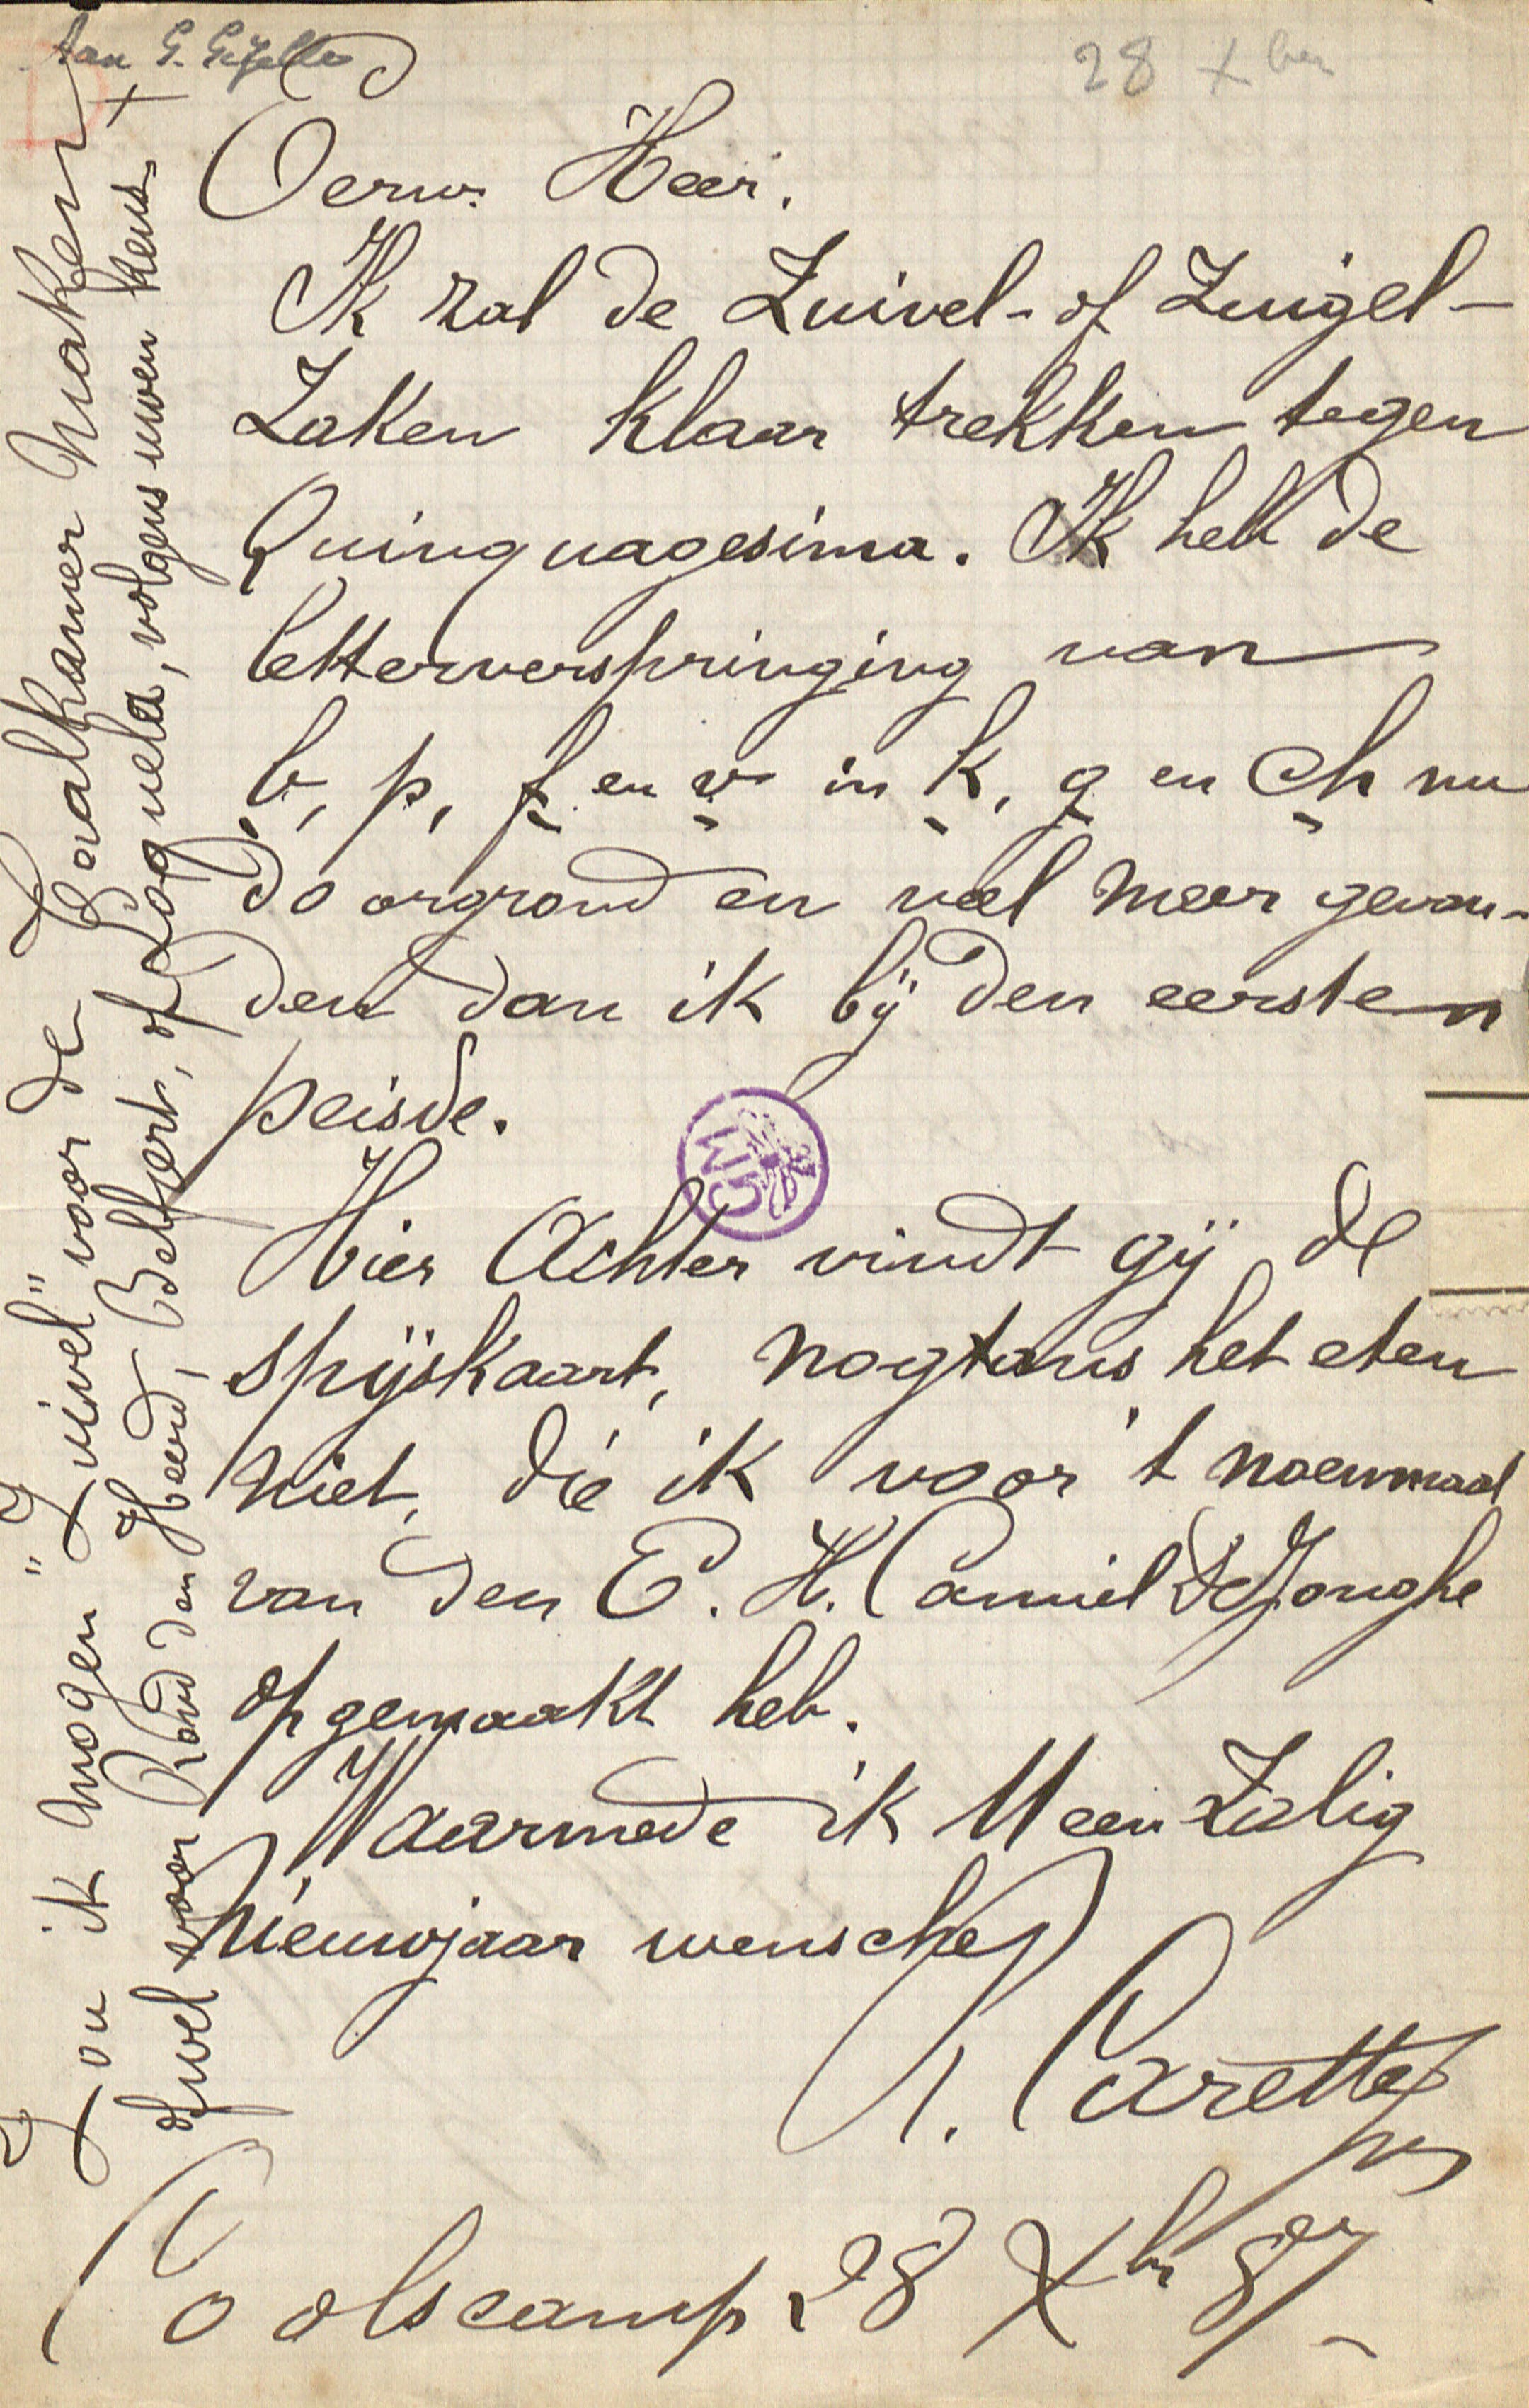 Aan G. Gezelle
28 Xber
+
Eerw. Heer.
Ik zal de Zuivel- of Zuigel-
Zaken klaar trekken tegen
Quinquagesima. Ik heb de
letterverspringing van
b, p, f en v in k, g en ch nu
doorgrond en veel meer gevon-
den dan ik bij den eersten
peisde.
Hier Achter vindt gij de
spijskaart, nogtans het eten
niet, die ik voor 't noenmaal
van den E. H. Camiel De Jonghe
opgemaakt heb.
Waarmede ik U een Zalig
Nieuwjaar wensche
A. Carette
Coolscamp 28 Xbr 87
Zou ik mogen "Zuivel" voor de Taalkamer maken
ofwel voor Rond den Heerd, Belfort, of Loquela, volgens uwen keus.